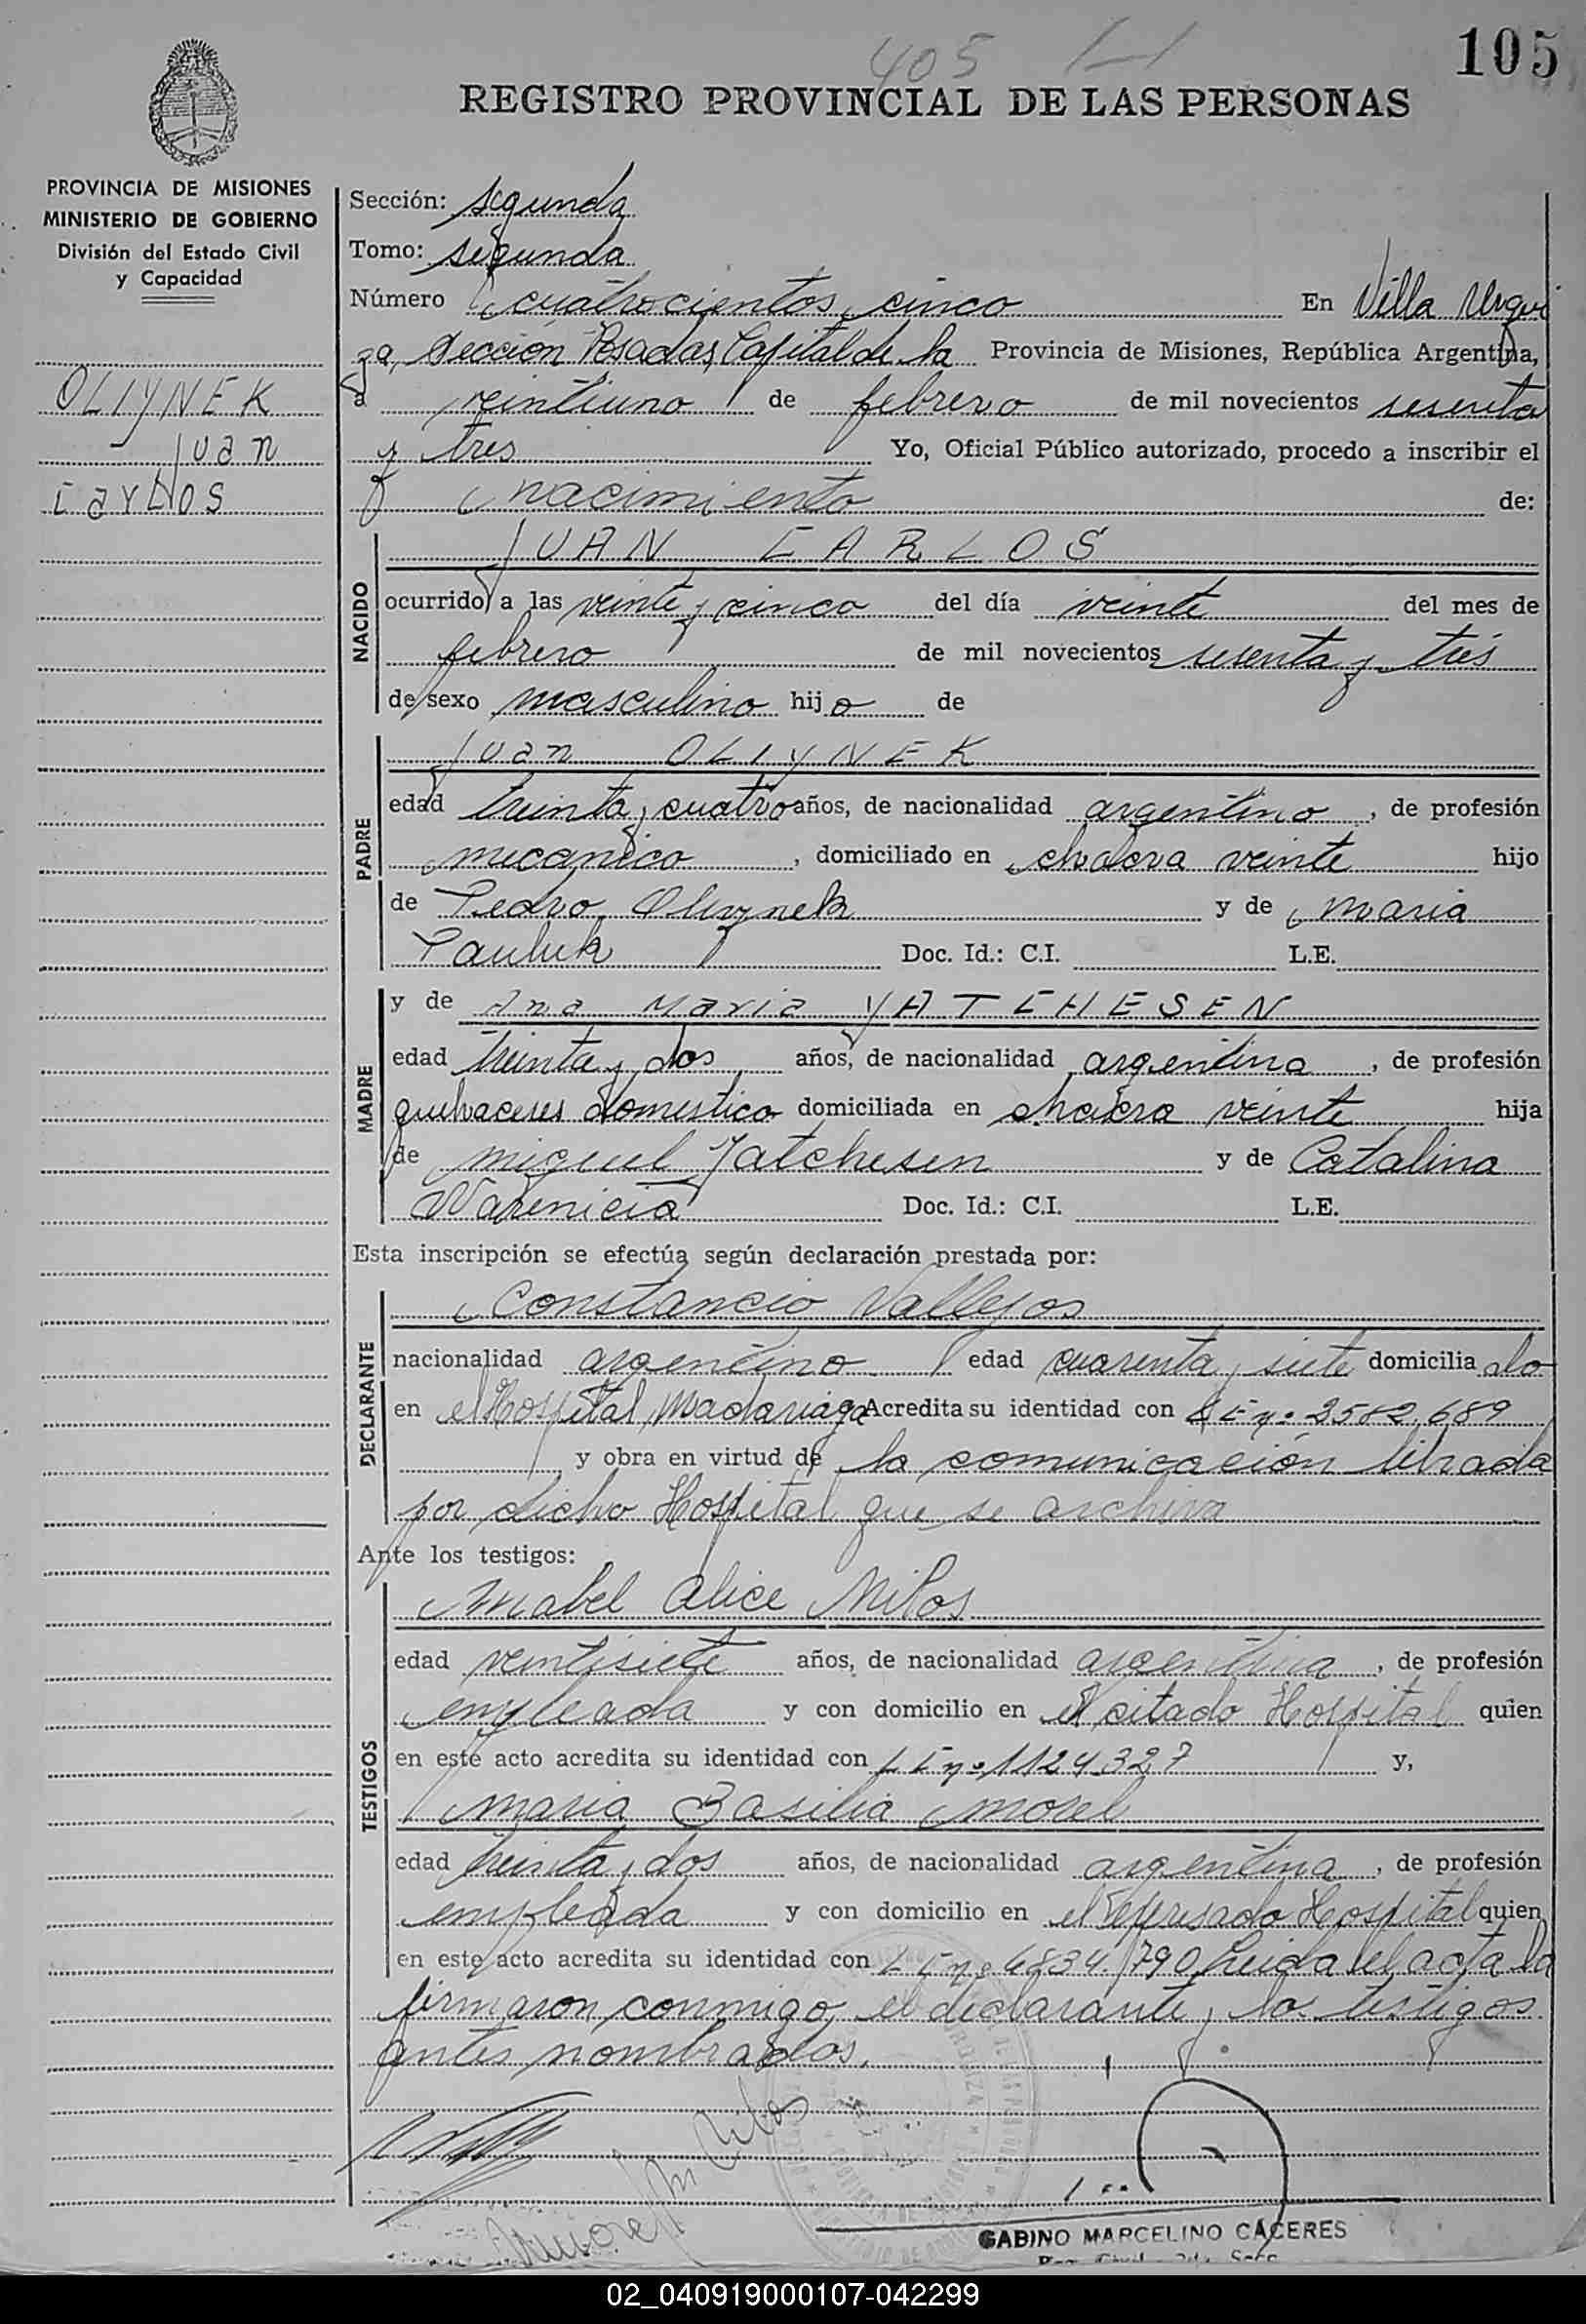 405
105
REGISTRO PROVINCIAL DE LAS PERSONAS
PROVINCIA DE MISIONES
MINISTERIO DE GOBIERNO
División del Estado Civil
y Capacidad
OLIYNEK
Juan
Carlos
Sección: segunda
Tomo: segunda
Número cuatrocientos cinco En Villa Urqui
za, Sección Posadas, Capital de la Provincia de Misiones, República Argentina,
a veintiuno de febrero de mil novecientos sesenta
y tres Yo, Oficial Público autorizado, procedo a inscribir el
nacimiento de:
NACIDO
JUAN CARLOS
ocurrido a las veinte y cinco del día veinte del mes de
febrero de mil novecientos sesenta y trés
de sexo masculino hijo de
PADRE
Juan OLIYNEK
edad treinta y cuatro años, de nacionalidad argentino, de profesión
mecanico, domiciliado en chacra veinte hijo
de Pedro Oliynek y de maria
Pauluk Doc. Id.: C.I. L.E.
MADRE
y de Ana Maria YATCHESEN
edad treinta y dos años, de nacionalidad argentina, de profesión
quehaceres domestico domiciliada en chacra veinte hija
de miguel Yatchesen y de Catalina
Warenicia Doc. Id.: C.I. L.E.
Esta inscripción se efectúa según declaración prestada por:
DECLARANTE
Constancio Vallejos
nacionalidad argentino edad cuarenta y siete domiciliado
en el Hospital Madariaga Acredita su identidad con LE nº 2582.689
y obra en virtud de la comunicación librada
por dicho Hospital que se archiva
Ante los testigos:
TESTIGOS
Mabel Alice Milos
edad veintisiete años, de nacionalidad argentina, de profesión
empleada y con domicilio en el citado Hospital quien
en este acto acredita su identidad con LC nº 1124327 y,
maria Basilia morel
edad treinta y dos años, de nacionalidad argentina, de profesión
empleada y con domicilio en el expresado Hospital quien
en este acto acredita su identidad con LC nº 6834.790 Leida el acta la
firmaron conmigo, el declarante y los testigos
antes nombrados.
GABINO MARCELINO CACERES
02_040919000107-042299